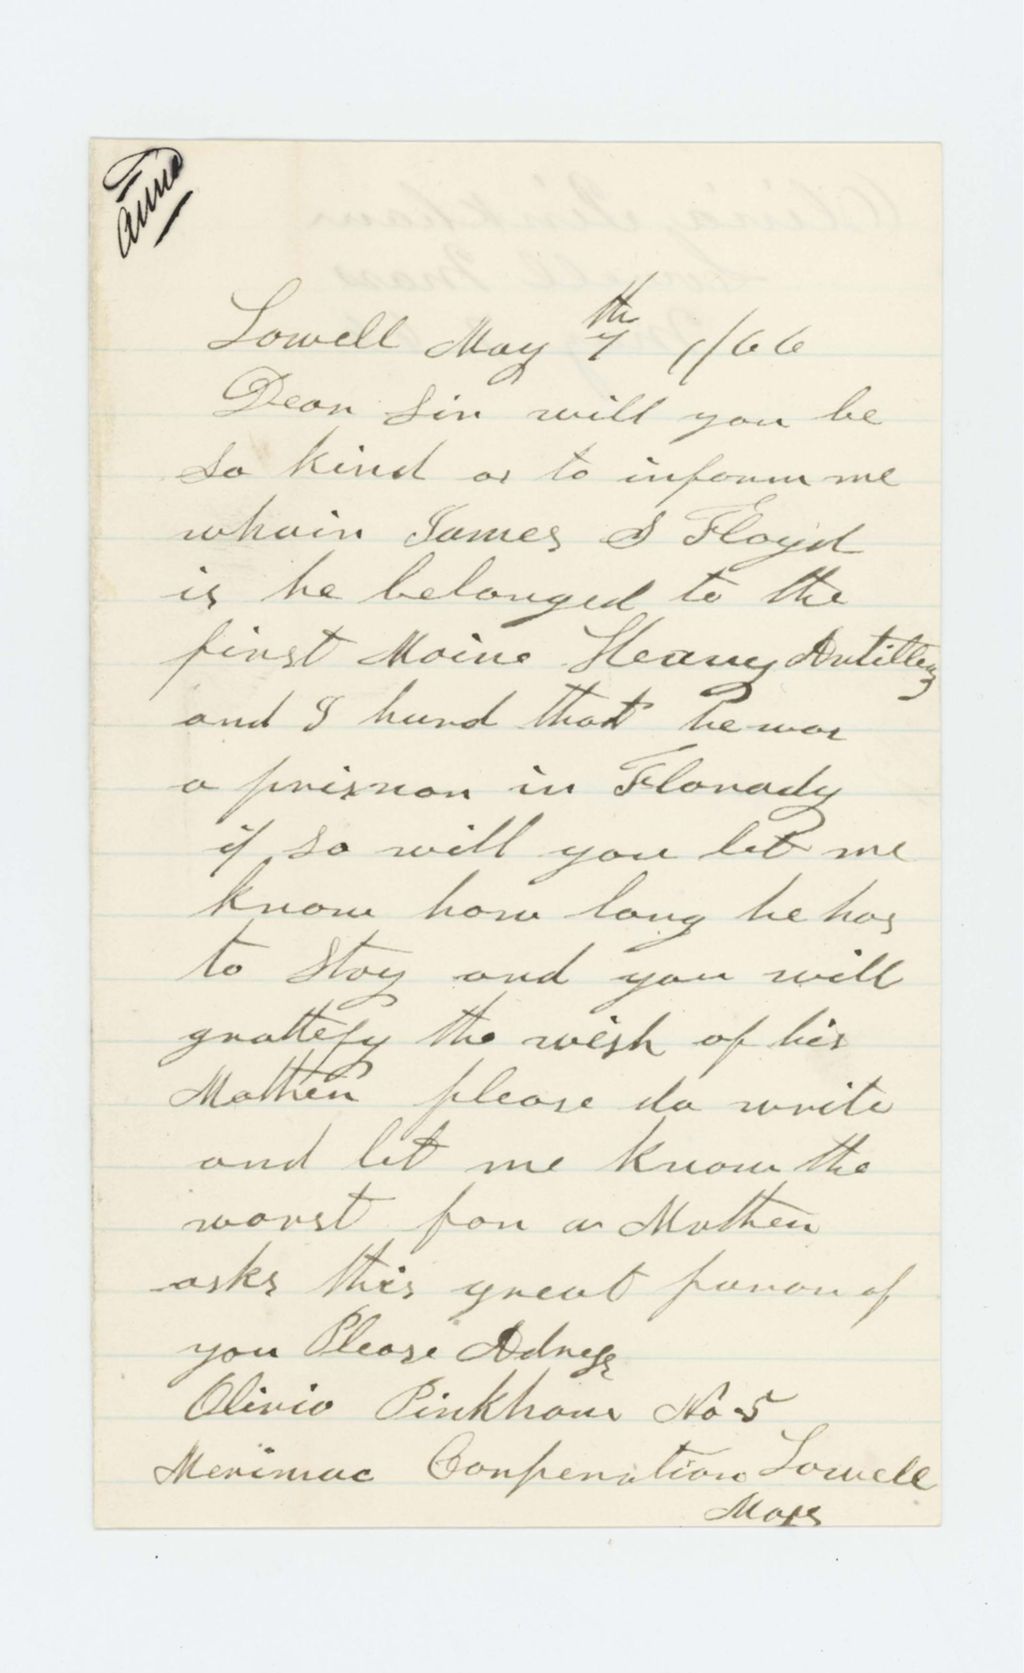 Lowell May 7th /66
Dear Sir will you be
so kind as to inform me
whair James S Floyd
is he belonged to the
first Maine Heavy Artillery
and I hurd that he was
a prisnor in Florady
if so will you let me
know how long he has
to Stay and you will
grattefy the wish of his
Mother please do write
and let me know the
worst for a Mother
asks this great favor of
you Please Adress
Olivia Pinkham No 5
Merimac Corperation Lowell
Mass